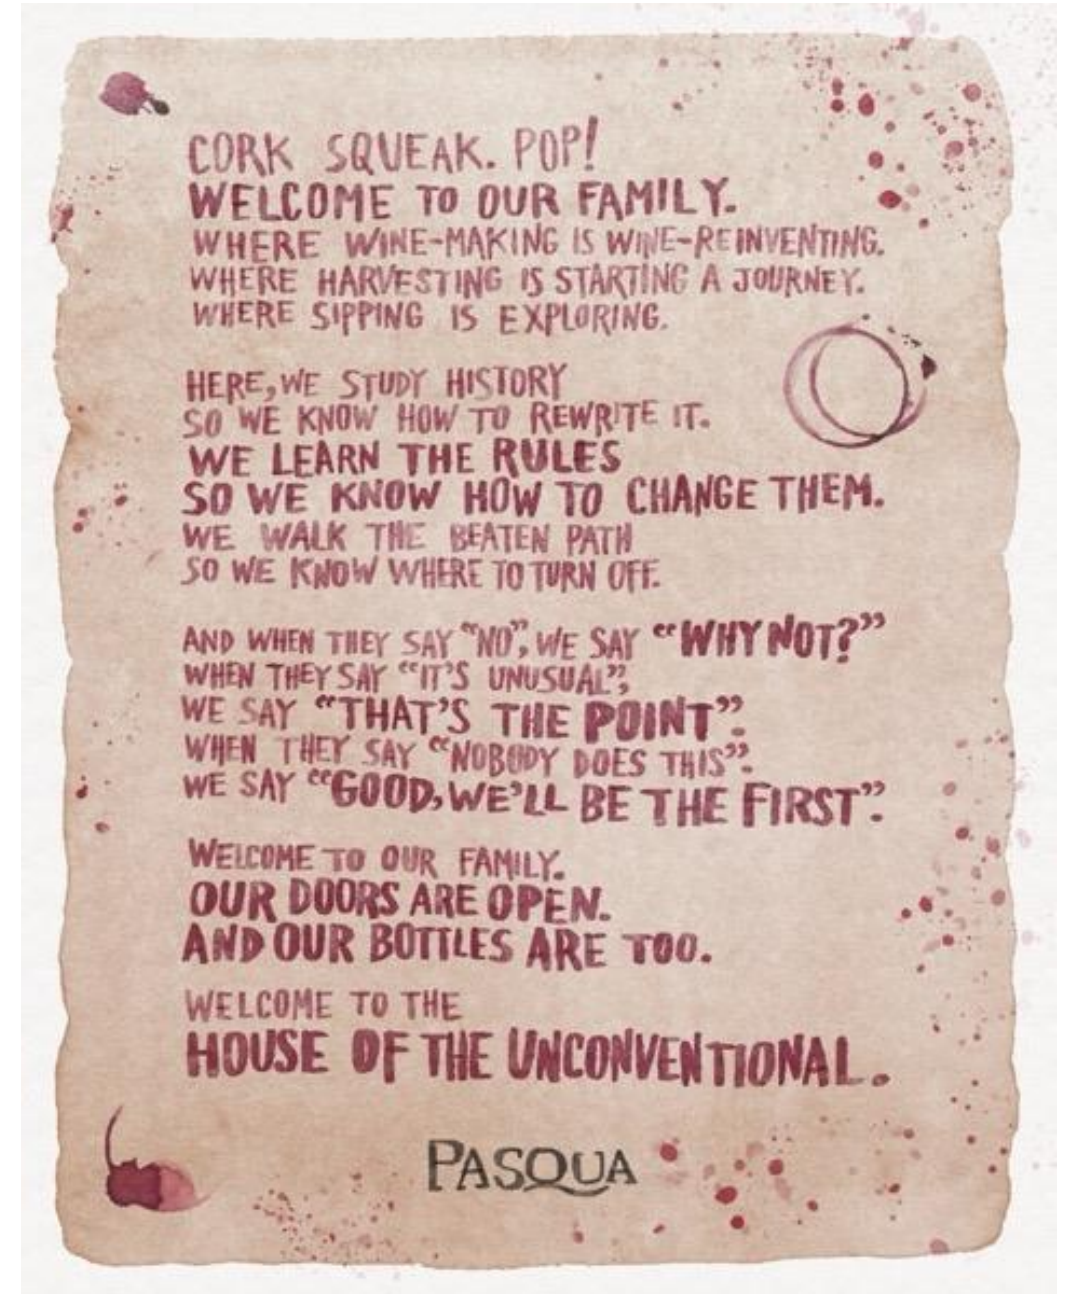 CORK SQUEAK. POP!
WELCOME TO OUR FAMILY.
WHERE WINE-MAKING IS WINE-REINVENTING.
WHERE HARVESTING IS STARTING A JOURNEY.
WHERE SIPPING IS EXPLORING.
HERE, WE STUDY HISTORY
SO WE KNOW HOW TO REWRITE IT.
WE LEARN THE RULES
SO WE KNOW HOW TO CHANGE THEM.
WE WALK THE BEATEN PATH
SO WE KNOW WHERE TO TURN OFF.
AND WHEN THEY SAY “NO”, WE SAY “WHY NOT?”
WHEN THEY SAY “IT'S UNUSUAL”,
WE SAY “THAT'S THE POINT”.
WHEN THEY SAY “NOBODY DOES THIS”.
WE SAY “GOOD, WE'LL BE THE FIRST”.
WELCOME TO OUR FAMILY.
OUR DOORS ARE OPEN.
AND OUR BOTTLES ARE TOO.
WELCOME TO THE
HOUSE OF THE UNCONVENTIONAL.
PASQUA